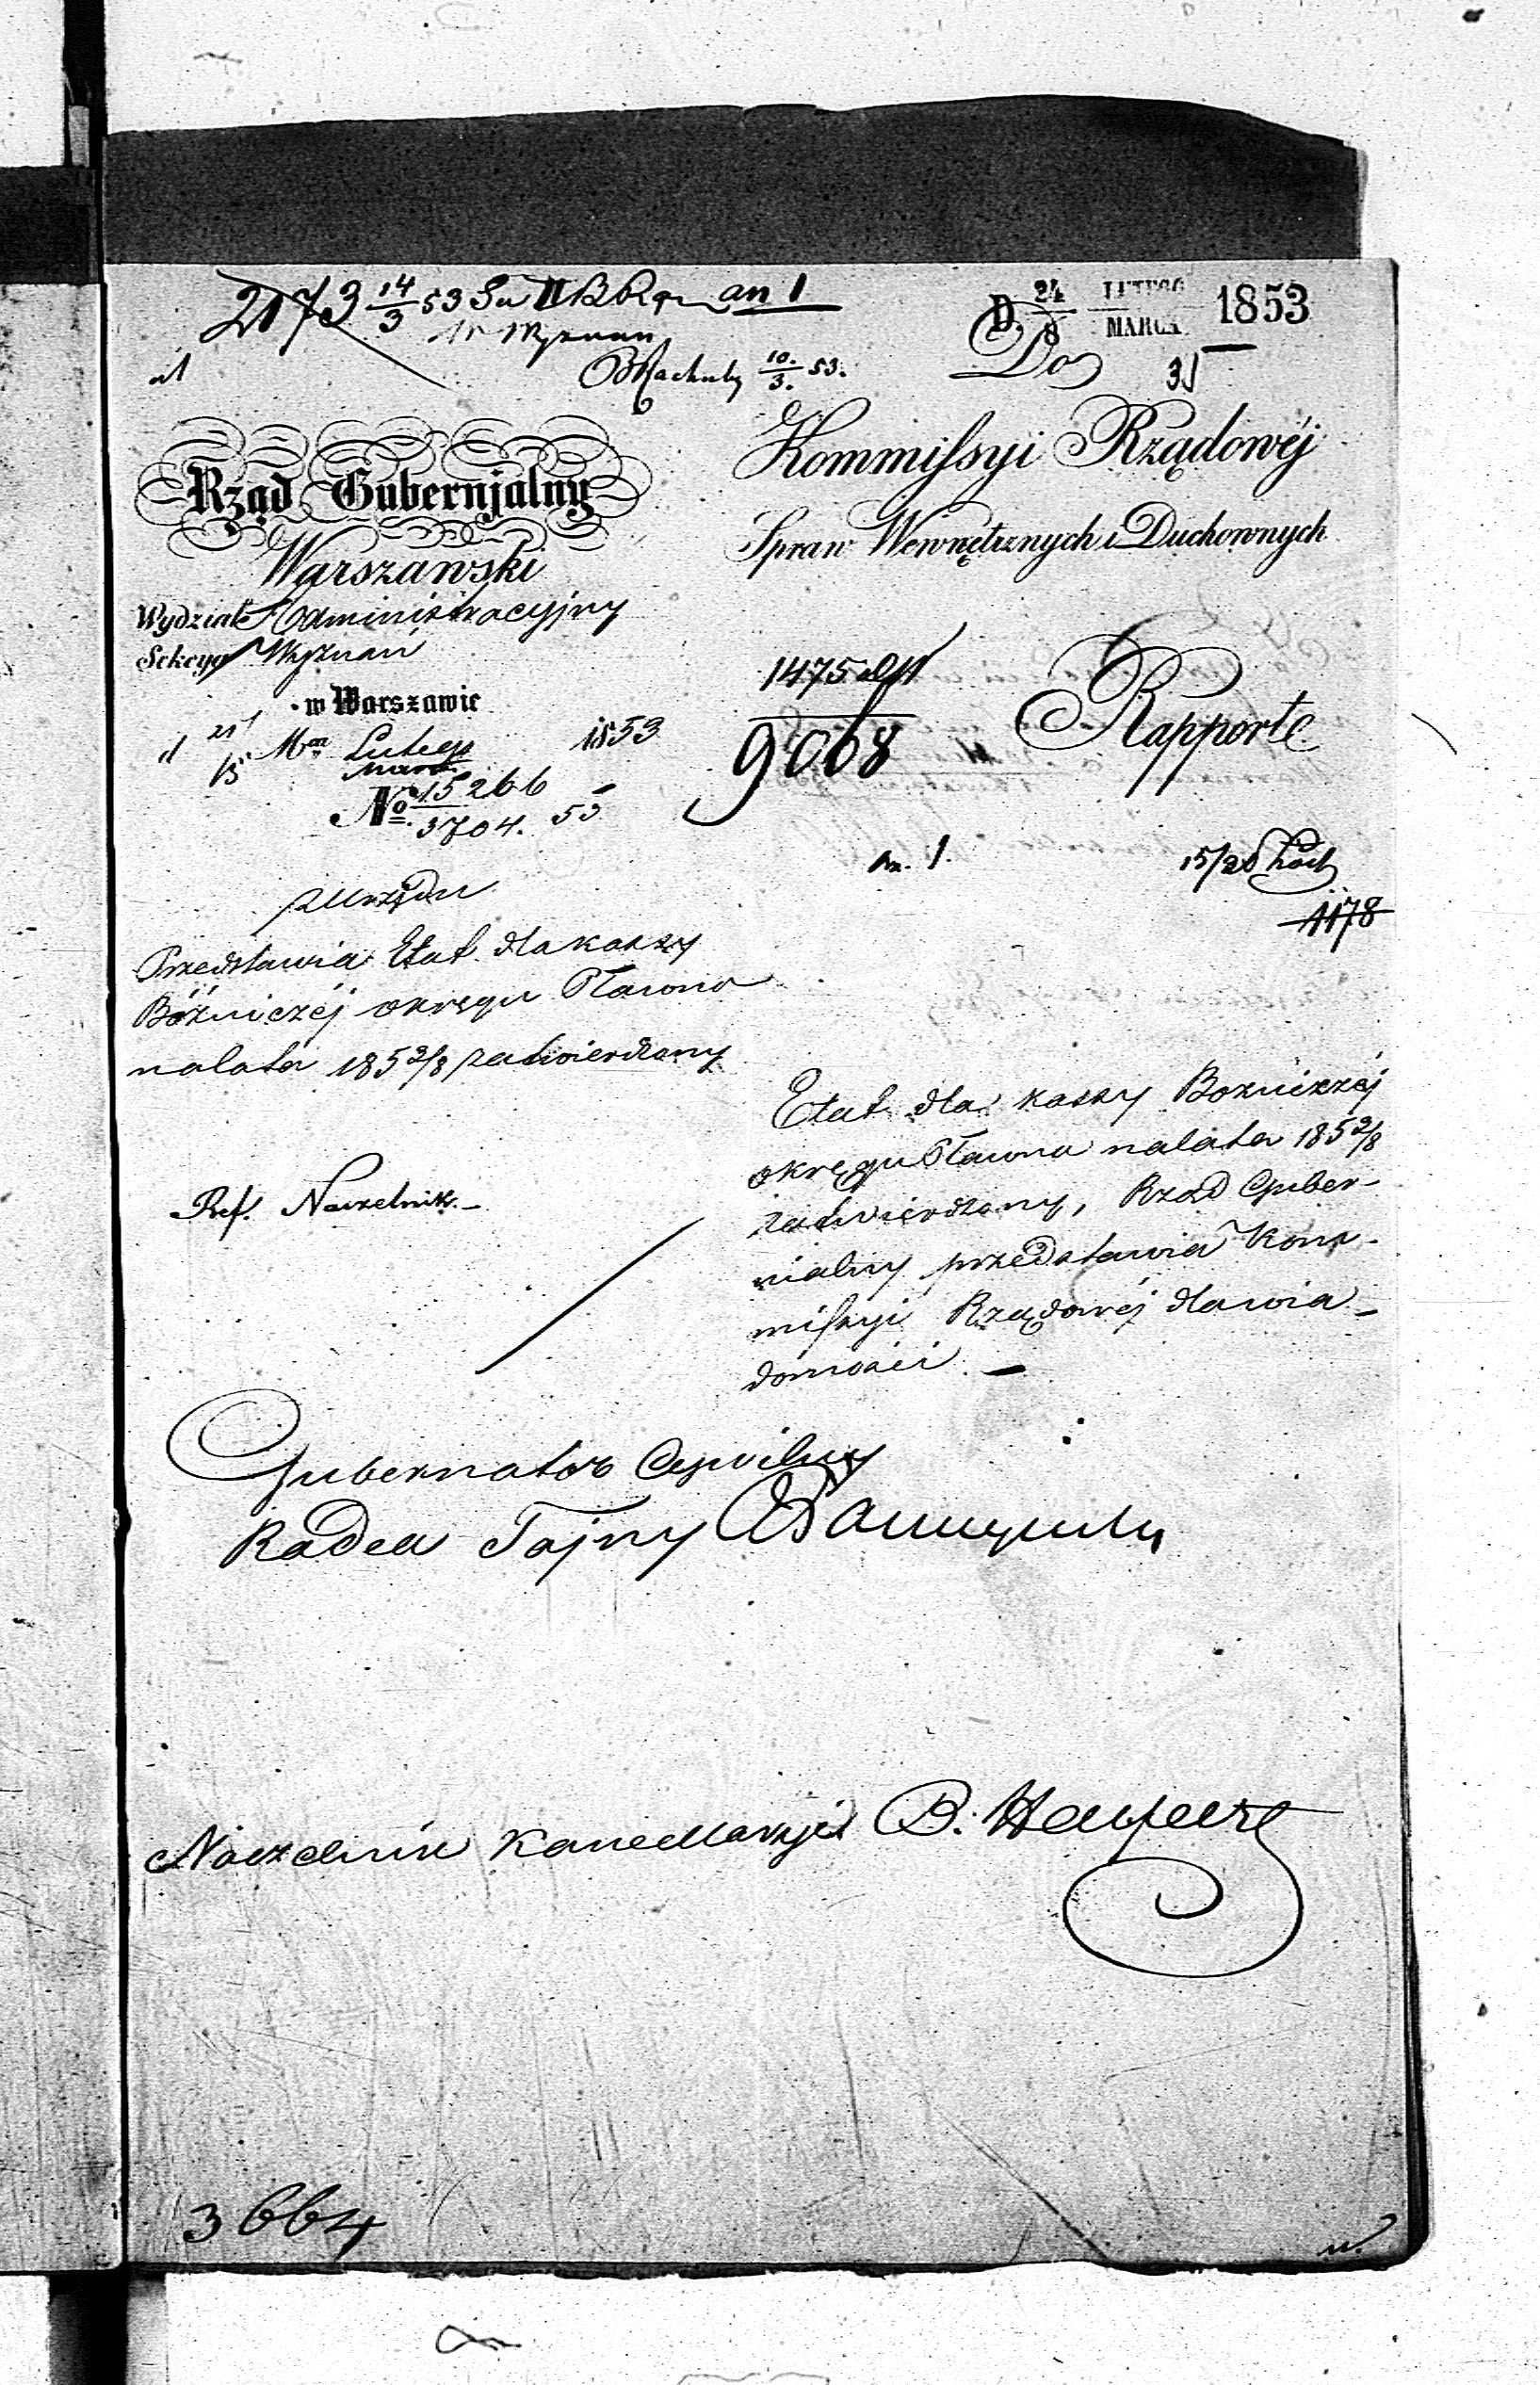 2173 14/3 53 an 1
Wyznan
10./3. 53.
D. 24/8 LUTEGO/MARCA 1853
Do
Kommissyi Rządowéj
Spraw Wewnętrznych i Duchownych
Rząd Gubernjalny
Warszawski
Wydział Administracyjny
Sekcya Wyznań
w Warszawie
d Mca Lutego 1853
Marca
No. 15266/3704. 53
1475
9068
Rapporte
1.
1178
z Urzędu
Przedstawia Etat dla kassy
Bóżniczéj okręgu Pławno
na lata 1853/8 zatwierdzony
Ref. Naczelnik.
Etat dla kassy Bozniczéj
okręgu Pławno na lata 1853/8
zatwierdzony, Rząd Guber-
nialny przedstawia Kom-
missyi Rządowéj dla wia-
domości. —
Gubernator Cywilny
Radca Tajny
Naczelnik Kancellaryi B.
3664